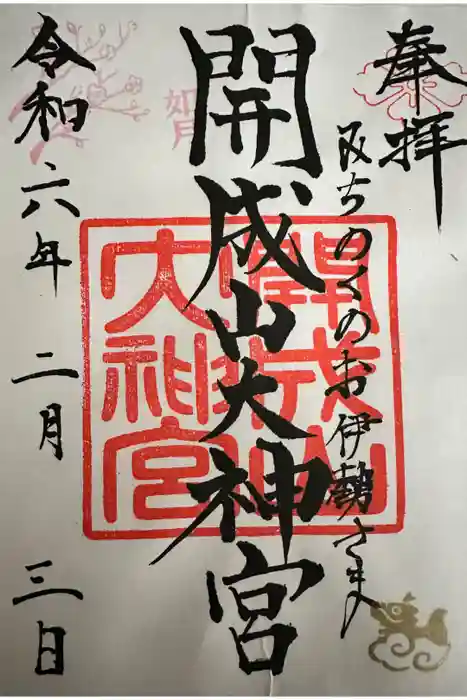 奉拝
みちのくのお伊勢さま
開成山大神宮
開成山大神宮
如月
令和六年二月三日